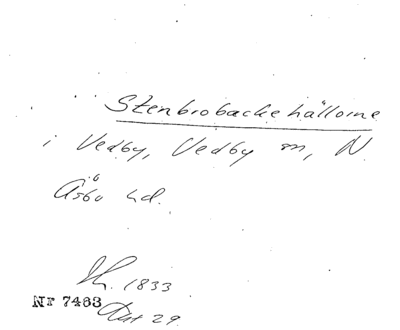 Stenbrobackehällorne
i Vedby, Vedby sn, N
Åsbo hd.
Sk. 1833
Nr 7463 Akt 29.